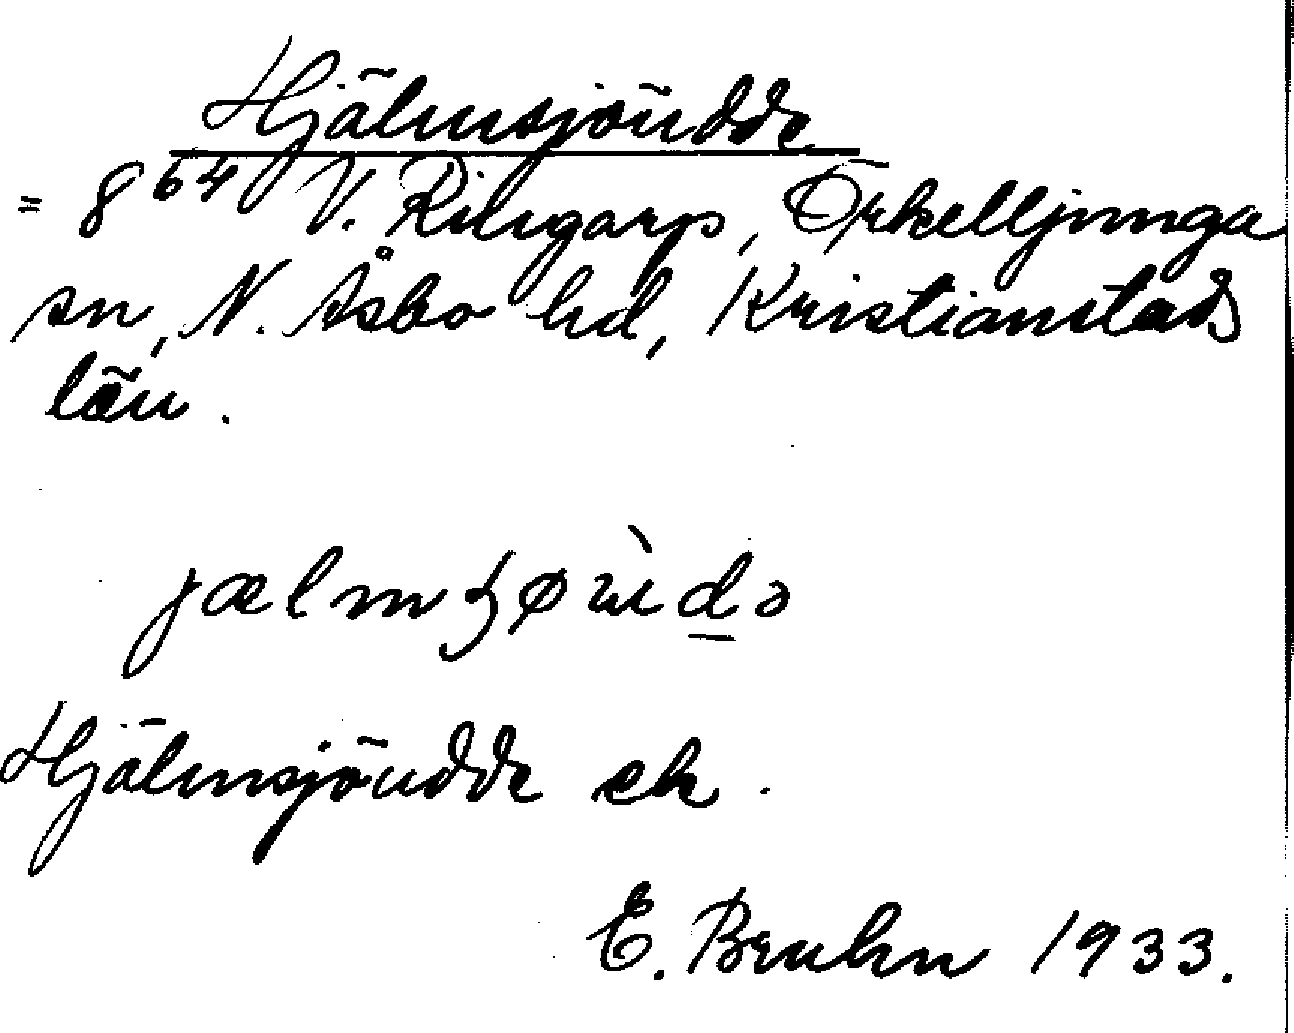 Hjälmsjöudde
= 8⁶⁴ V. Ringarp, Örkelljunga
sn, N. Åsbo hd, Kristianstads
län.
jælmʂøùdə
Hjälmsjöudde ek.
E. Bruhn 1933.